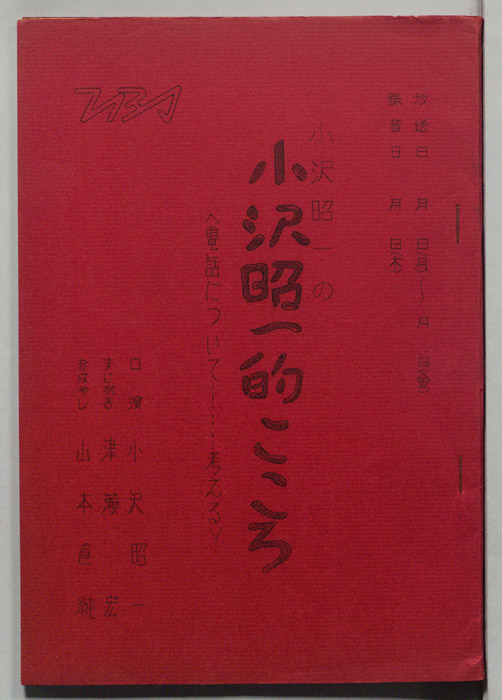 放送日　月　日(月)〜　月　日(金)
録音日　月　日(木)
小沢昭一の
小沢昭一的こころ
〈電話について‥‥‥考える〉
口演　小沢昭一
すじがき　津瀬宏
おはやし　山本直純